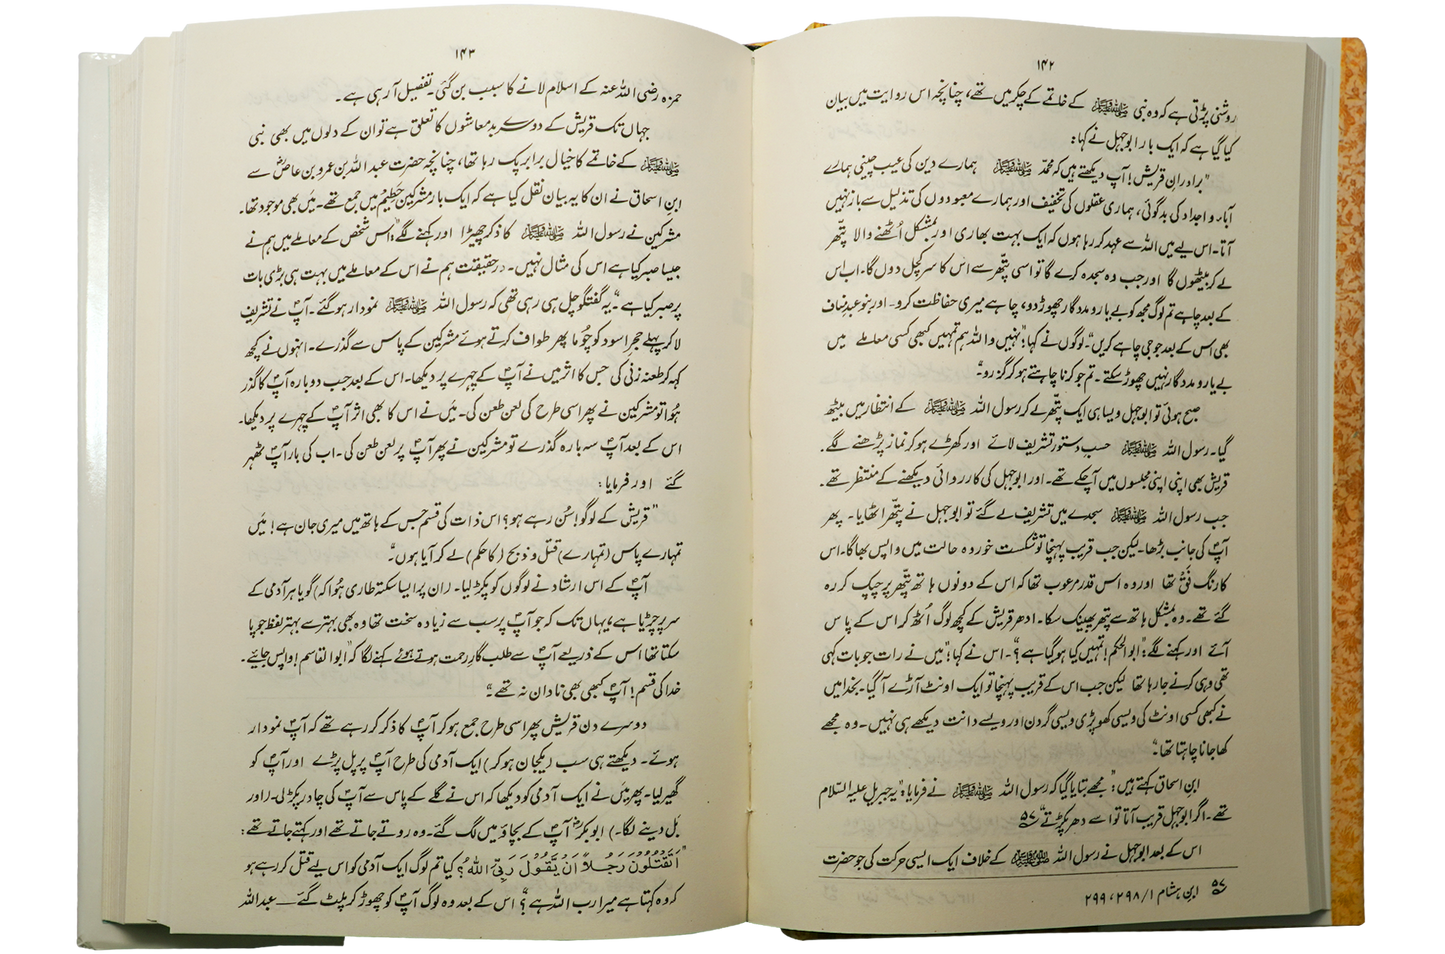 ۱۴۲
روشنی پڑتی ہے کہ وہ نبی ﷺ کے خاتمے کے چکر میں تھے، چنانچہ اس روایت میں بیان
کیا گیا ہے کہ ایک بار ابوجہل نے کہا:
"برادرانِ قریش! آپ دیکھتے ہیں کہ محمّد ﷺ ہمارے دین کی عیب چینی ہمارے
آباء و اجداد کی بدگوئی، ہماری عقلوں کی تخفیف اور ہمارے معبودوں کی تذلیل سے باز نہیں
آتا۔ اس لیے میں اللہ سے عہد کر رہا ہوں کہ ایک بہت بھاری اور بمشکل اُٹھنے والا پتّھر
لے کر بیٹھوں گا اور جب وہ سجدہ کرے گا تو اسی پتّھر سے اس کا سر کچل دوں گا۔ اب اس
کے بعد چاہے تم لوگ مجھ کو بے یار و مددگار چھوڑ دو، چاہے میری حفاظت کرو۔ اور بنو عبدِ مناف
بھی اس کے بعد جو جی چاہے کریں"۔ لوگوں نے کہا: "نہیں واللہ ہم تمہیں کبھی کسی معاملے میں
بے یار و مددگار نہیں چھوڑ سکتے۔ تم جو کرنا چاہتے ہو کر گزرو۔"
صبح ہوئی تو ابوجہل ویسا ہی ایک پتّھر لے کر رسول اللہ ﷺ کے انتظار میں بیٹھ
گیا۔ رسول اللہ ﷺ حسب دستور تشریف لائے اور کھڑے ہو کر نماز پڑھنے لگے۔
قریش بھی اپنی اپنی مجلسوں میں آچکے تھے۔ اور ابوجہل کی کارروائی دیکھنے کے منتظر تھے۔
جب رسول اللہ ﷺ سجدے میں تشریف لے گئے تو ابوجہل نے پتّھر اٹھایا۔ پھر
آپؐ کی جانب بڑھا۔ لیکن جب قریب پہنچا تو شکست خوردہ حالت میں واپس بھاگا۔ اس
کا رنگ فَق تھا اور وہ اس قدر مرعوب تھا کہ اس کے دونوں ہاتھ پتّھر پر چپک کر رہ
گئے تھے۔ وہ بمشکل ہاتھ سے پتھر پھینک سکا۔ ادھر قریش کے کچھ لوگ اُٹھ کر اس کے پاس
آئے اور کہنے لگے: "ابوالحکم! تمہیں کیا ہو گیا ہے؟" اس نے کہا: "میں نے رات جو بات کہی
تھی وہی کرنے جا رہا تھا لیکن جب اس کے قریب پہنچا تو ایک اونٹ آڑے آگیا۔ بخدا میں
نے کبھی کسی اونٹ کی ویسی کھوپڑی ویسی گردن اور ویسے دانت دیکھے ہی نہیں۔ وہ مجھے
کھا جانا چاہتا تھا۔"
ابنِ اسحاق کہتے ہیں: "مجھے بتایا گیا کہ رسول اللہ ﷺ نے فرمایا: "یہ جبریل علیہ السّلام
تھے۔ اگر ابوجہل قریب آتا تو اسے دھر پکڑتے"۔
اس کے بعد ابوجہل نے رسول اللہ ﷺ کے خلاف ایک ایسی حرکت کی جو حضرت
ابن ہشام ۱/ ۲۹۸، ۲۹۹
۱۴۳
حمزہ رضی اللہ عنہ کے اسلام لانے کا سبب بن گئی۔ تفصیل آ رہی ہے۔
جہاں تک قریش کے دوسرے بدمعاشوں کا تعلق ہے تو ان کے دلوں میں بھی نبی
ﷺ کے خاتمے کا خیال برابر پک رہا تھا، چنانچہ حضرت عبداللہ بن عمرو بن عاصؓ سے
ابنِ اسحاق نے ان کا یہ بیان نقل کیا ہے کہ ایک بار مشرکین حَطِیم میں جمع تھے۔ میں بھی موجود تھا۔
مشرکین نے رسول اللہ ﷺ کا ذکر چھیڑا اور کہنے لگے: "اس شخص کے معاملے میں ہم نے
جیسا صبر کیا ہے اس کی مثال نہیں۔ درحقیقت ہم نے اس کے معاملے میں بہت ہی بڑی بات
پر صبر کیا ہے"۔ یہ گفتگو چل ہی رہی تھی کہ رسول اللہ ﷺ نمودار ہو گئے۔ آپؐ نے تشریف
لا کر پہلے حجرِ اسود کو چُوما پھر طواف کرتے ہوئے مشرکین کے پاس سے گذرے۔ انہوں نے کچھ
کہہ کر طعنہ زنی کی جس کا اثر میں نے آپؐ کے چہرے پر دیکھا۔ اس کے بعد جب دوبارہ آپؐ کا گذر
ہُوا تو مشرکین نے پھر اسی طرح کی لعن طعن کی۔ میں نے اس کا بھی اثر آپؐ کے چہرے پر دیکھا۔
اس کے بعد آپؐ سہ بارہ گذرے تو مشرکین نے پھر آپؐ پر لعن طعن کی۔ اب کی بار آپؐ ٹھہر
گئے اور فرمایا:
"قریش کے لوگو! سُن رہے ہو؟ اس ذات کی قسم جس کے ہاتھ میں میری جان ہے! میں
تمہارے پاس (تمہارے) قتل و ذبح (کا حکم) لے کر آیا ہوں"۔
آپؐ کے اس ارشاد نے لوگوں کو پکڑ لیا۔ (ان پر ایسا سکتہ طاری ہُوا کہ) گویا ہر آدمی کے
سر پر چڑیا ہے، یہاں تک کہ جو آپؐ پر سب سے زیادہ سخت تھا وہ بھی بہتر سے بہتر لفظ جو پا
سکتا تھا اس کے ذریعے آپؐ سے طلب گارِ رحمت ہوتے ہوئے کہنے لگا کہ "ابوالقاسم! واپس جایئے۔
خدا کی قسم! آپؐ کبھی بھی نادان نہ تھے"۔
دوسرے دن قریش پھر اسی طرح جمع ہو کر آپؐ کا ذکر کر رہے تھے کہ آپؐ نمودار
ہوئے۔ دیکھتے ہی سب (یکجان ہو کر) ایک آدمی کی طرح آپؐ پر پل پڑے اور آپؐ کو
گھیر لیا۔ پھر میں نے ایک آدمی کو دیکھا کہ اس نے گلے کے پاس سے آپؐ کی چادر پکڑ لی۔ (اور
بَل دینے لگا۔) ابوبکرؓ آپؐ کے بچاؤ میں لگ گئے۔ وہ روتے جاتے تھے اور کہتے جاتے تھے:
"اَتَقْتُلُوْنَ رَجُلًا اَنْ یَّقُوْلَ رَبِّیَ اللّٰہُ؟ کیا تم لوگ ایک آدمی کو اس لیے قتل کر رہے ہو
کہ وہ کہتا ہے میرا رب اللہ ہے؟" اس کے بعد وہ لوگ آپؐ کو چھوڑ کر پلٹ گئے ــــ عبداللہ